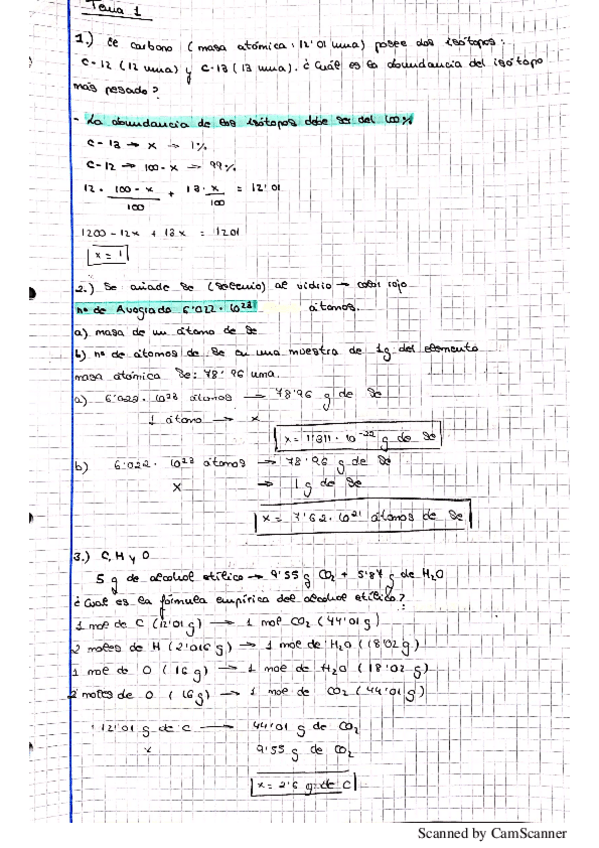 Tema 1
1.) El carbono (masa atómica: 12'01 uma) posee dos isótopos:
C-12 (12 uma) y C-13 (13 uma). ¿Cuál es la abundancia del isótopo
más pesado?
- La abundancia de los isótopos debe ser del 100%
C-13 → x → 1%
C-12 → 100-x → 99%
12 · (100 - x)/100 + 13 · x/100 = 12'01
1200 - 12x + 13x = 1201
x = 1
2.) Se añade Se (selenio) al vidrio → color rojo
nº de Avogrado 6'022 · 10²³ átomos.
a) masa de un átomo de Se
b) nº de átomos de Se en una muestra de 1g del elemento
masa atómica Se: 78'96 uma.
a) 6'023 · 10²³ átomos → 78'96 g de Se
1 átomo → x
x = 1'311 · 10⁻²² g de Se
b) 6'022 · 10²³ átomos → 78'96 g de Se
x → 1 g de Se
x = 7'62 · 10²¹ átomos de Se
3.) C, H y O
5 g de alcohol etílico → 9'55 g CO₂ + 5'87 g de H₂O
¿Cual es la fórmula empírica del alcohol etílico?
1 mol de C (12'01 g) → 1 mol CO₂ (44'01 g)
2 moles de H (2'016 g) → 1 mol de H₂O (18'02 g)
1 mol de O (16 g) → 1 mol de H₂O (18'02 g)
2 moles de O (16 g) → 1 mol de CO₂ (44'01 g)
12'01 g de C → 44'01 g de CO₂
x 9'55 g de CO₂
x = 2'6 g de C
Scanned by CamScanner